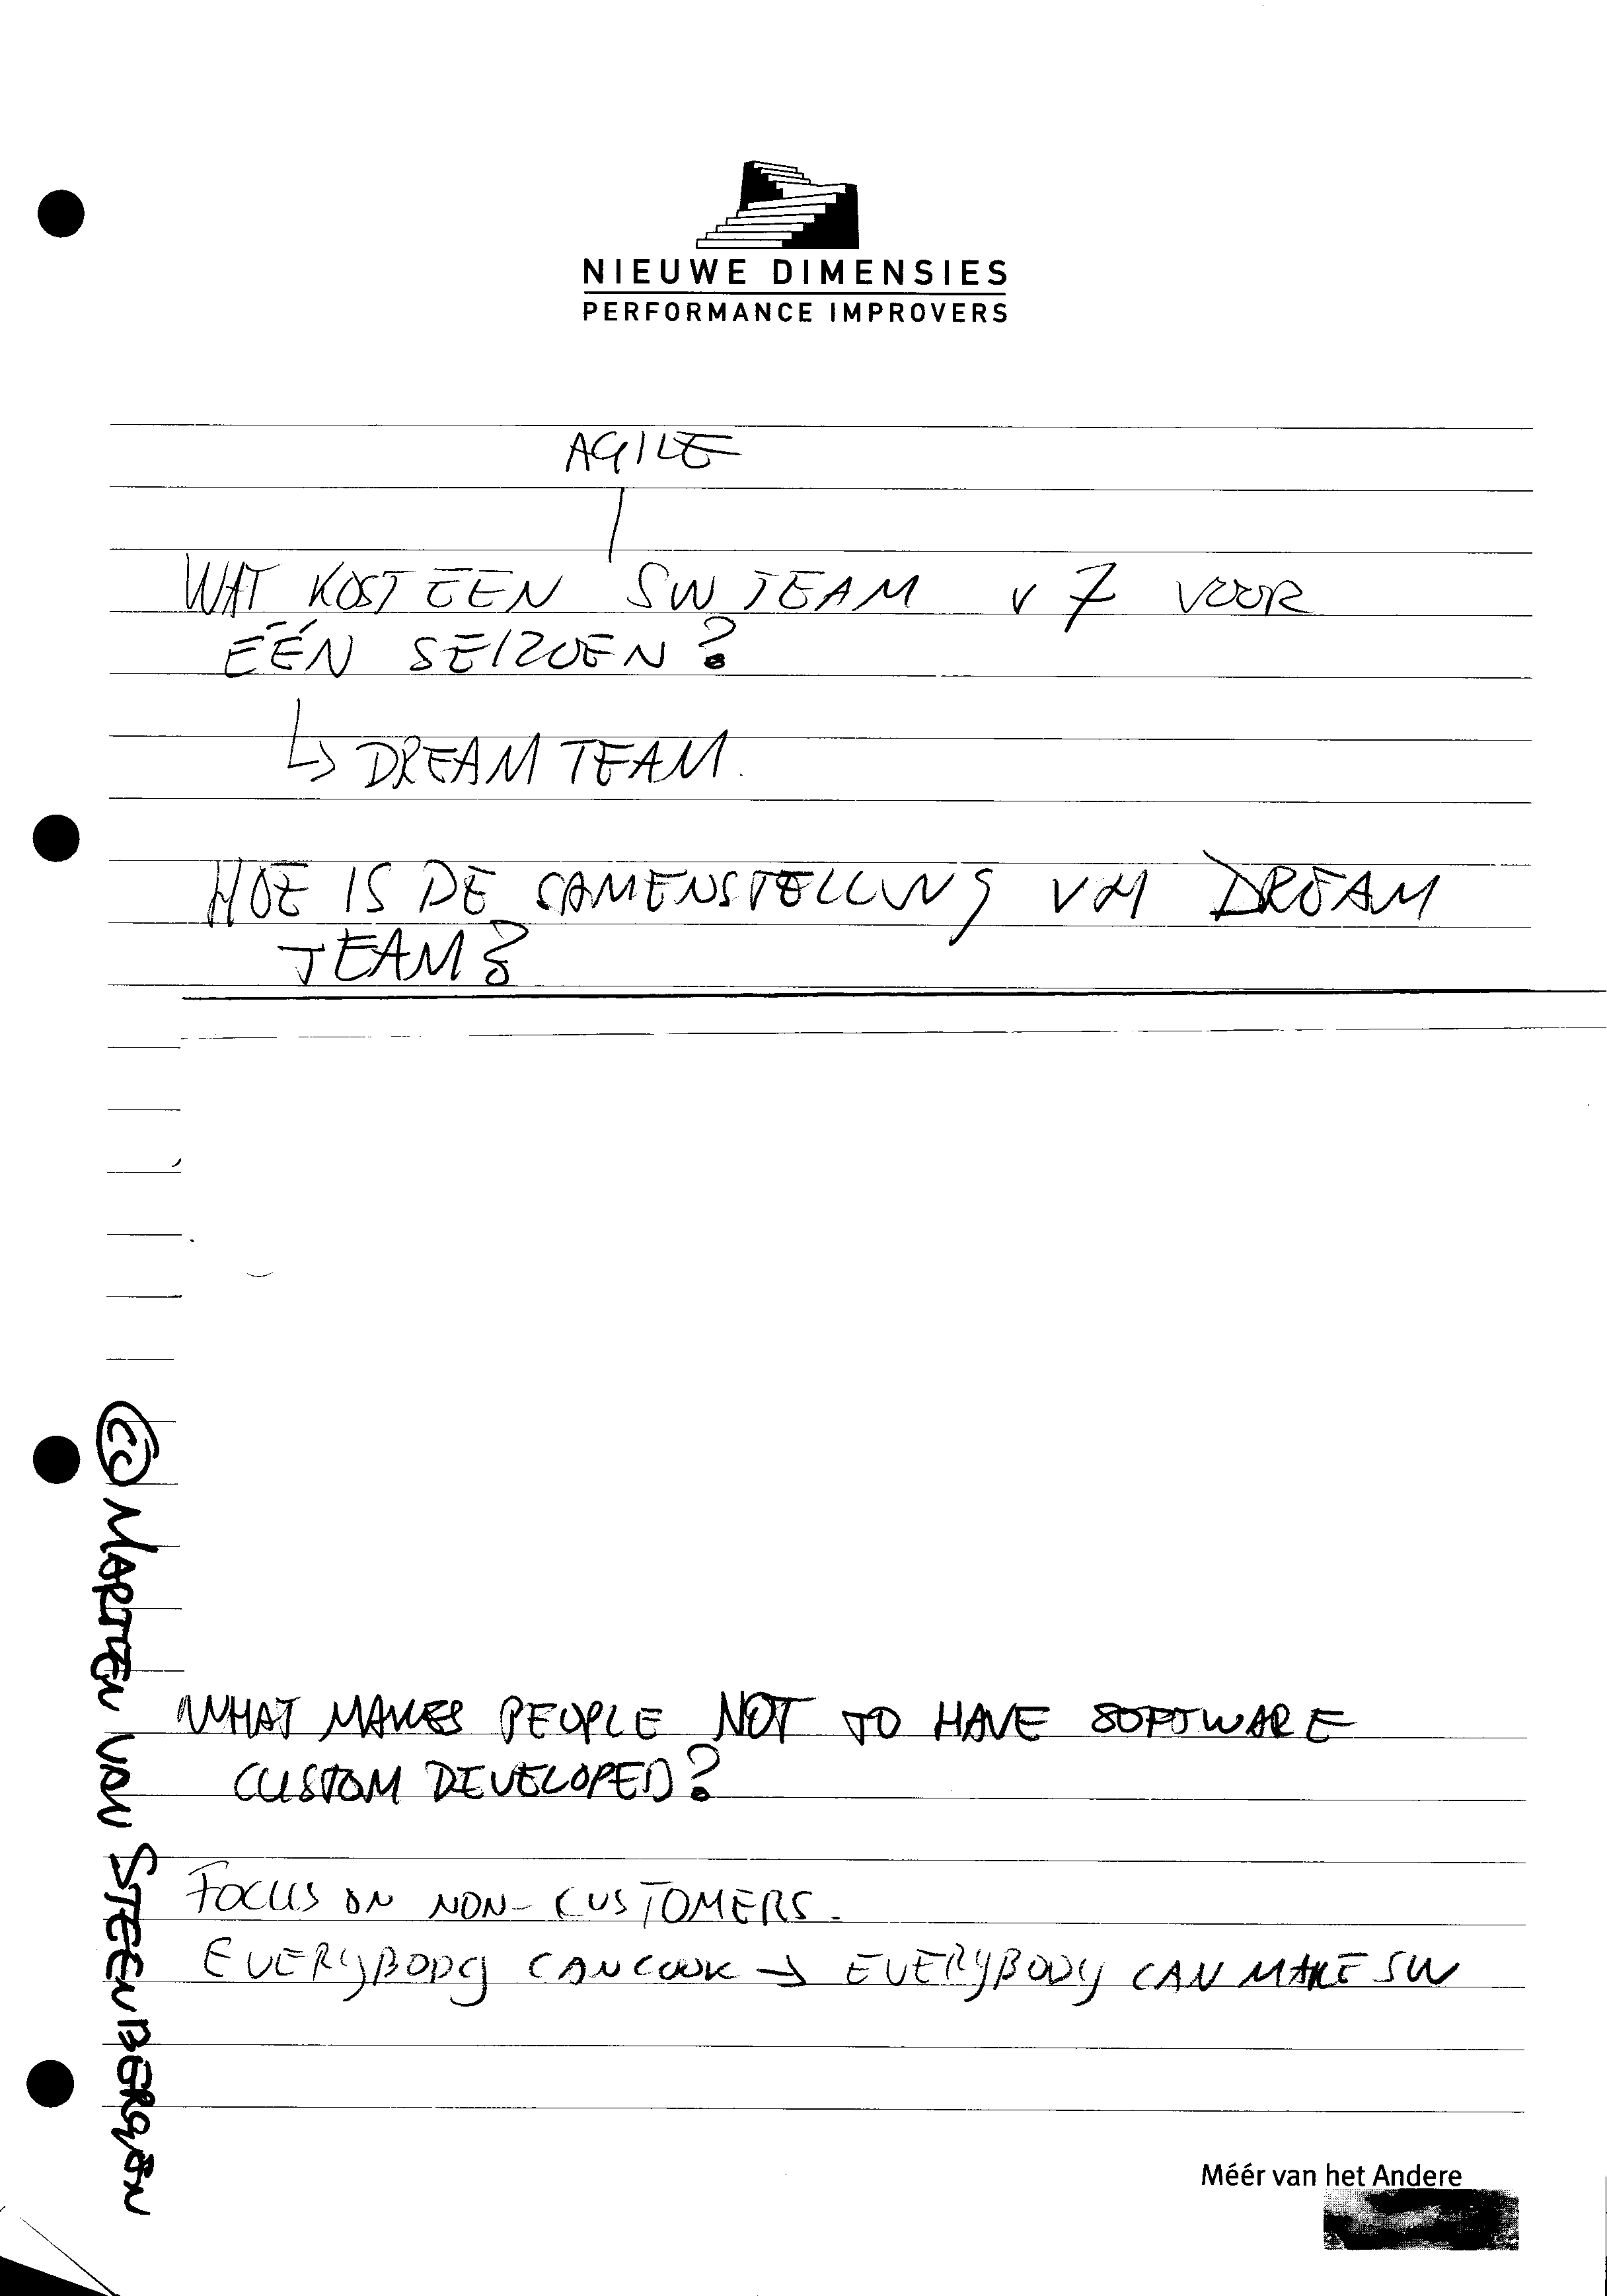 NIEUWE DIMENSIES
PERFORMANCE IMPROVERS
AGILE
WAT KOST EEN SW TEAM v 7 VOOR
ÉÉN SEIZOEN?
↳ DREAM TEAM.
HOE IS DE SAMENSTELLING VH DREAM
TEAM?
© MARTIEN VAN STEENBERGEN
WHAT MAKES PEOPLE NOT TO HAVE SOFTWARE
CUSTOM DEVELOPED?
FOCUS ON NON-CUSTOMERS.
EVERYBODY CAN COOK → EVERYBODY CAN MAKE SW
Méér van het Andere